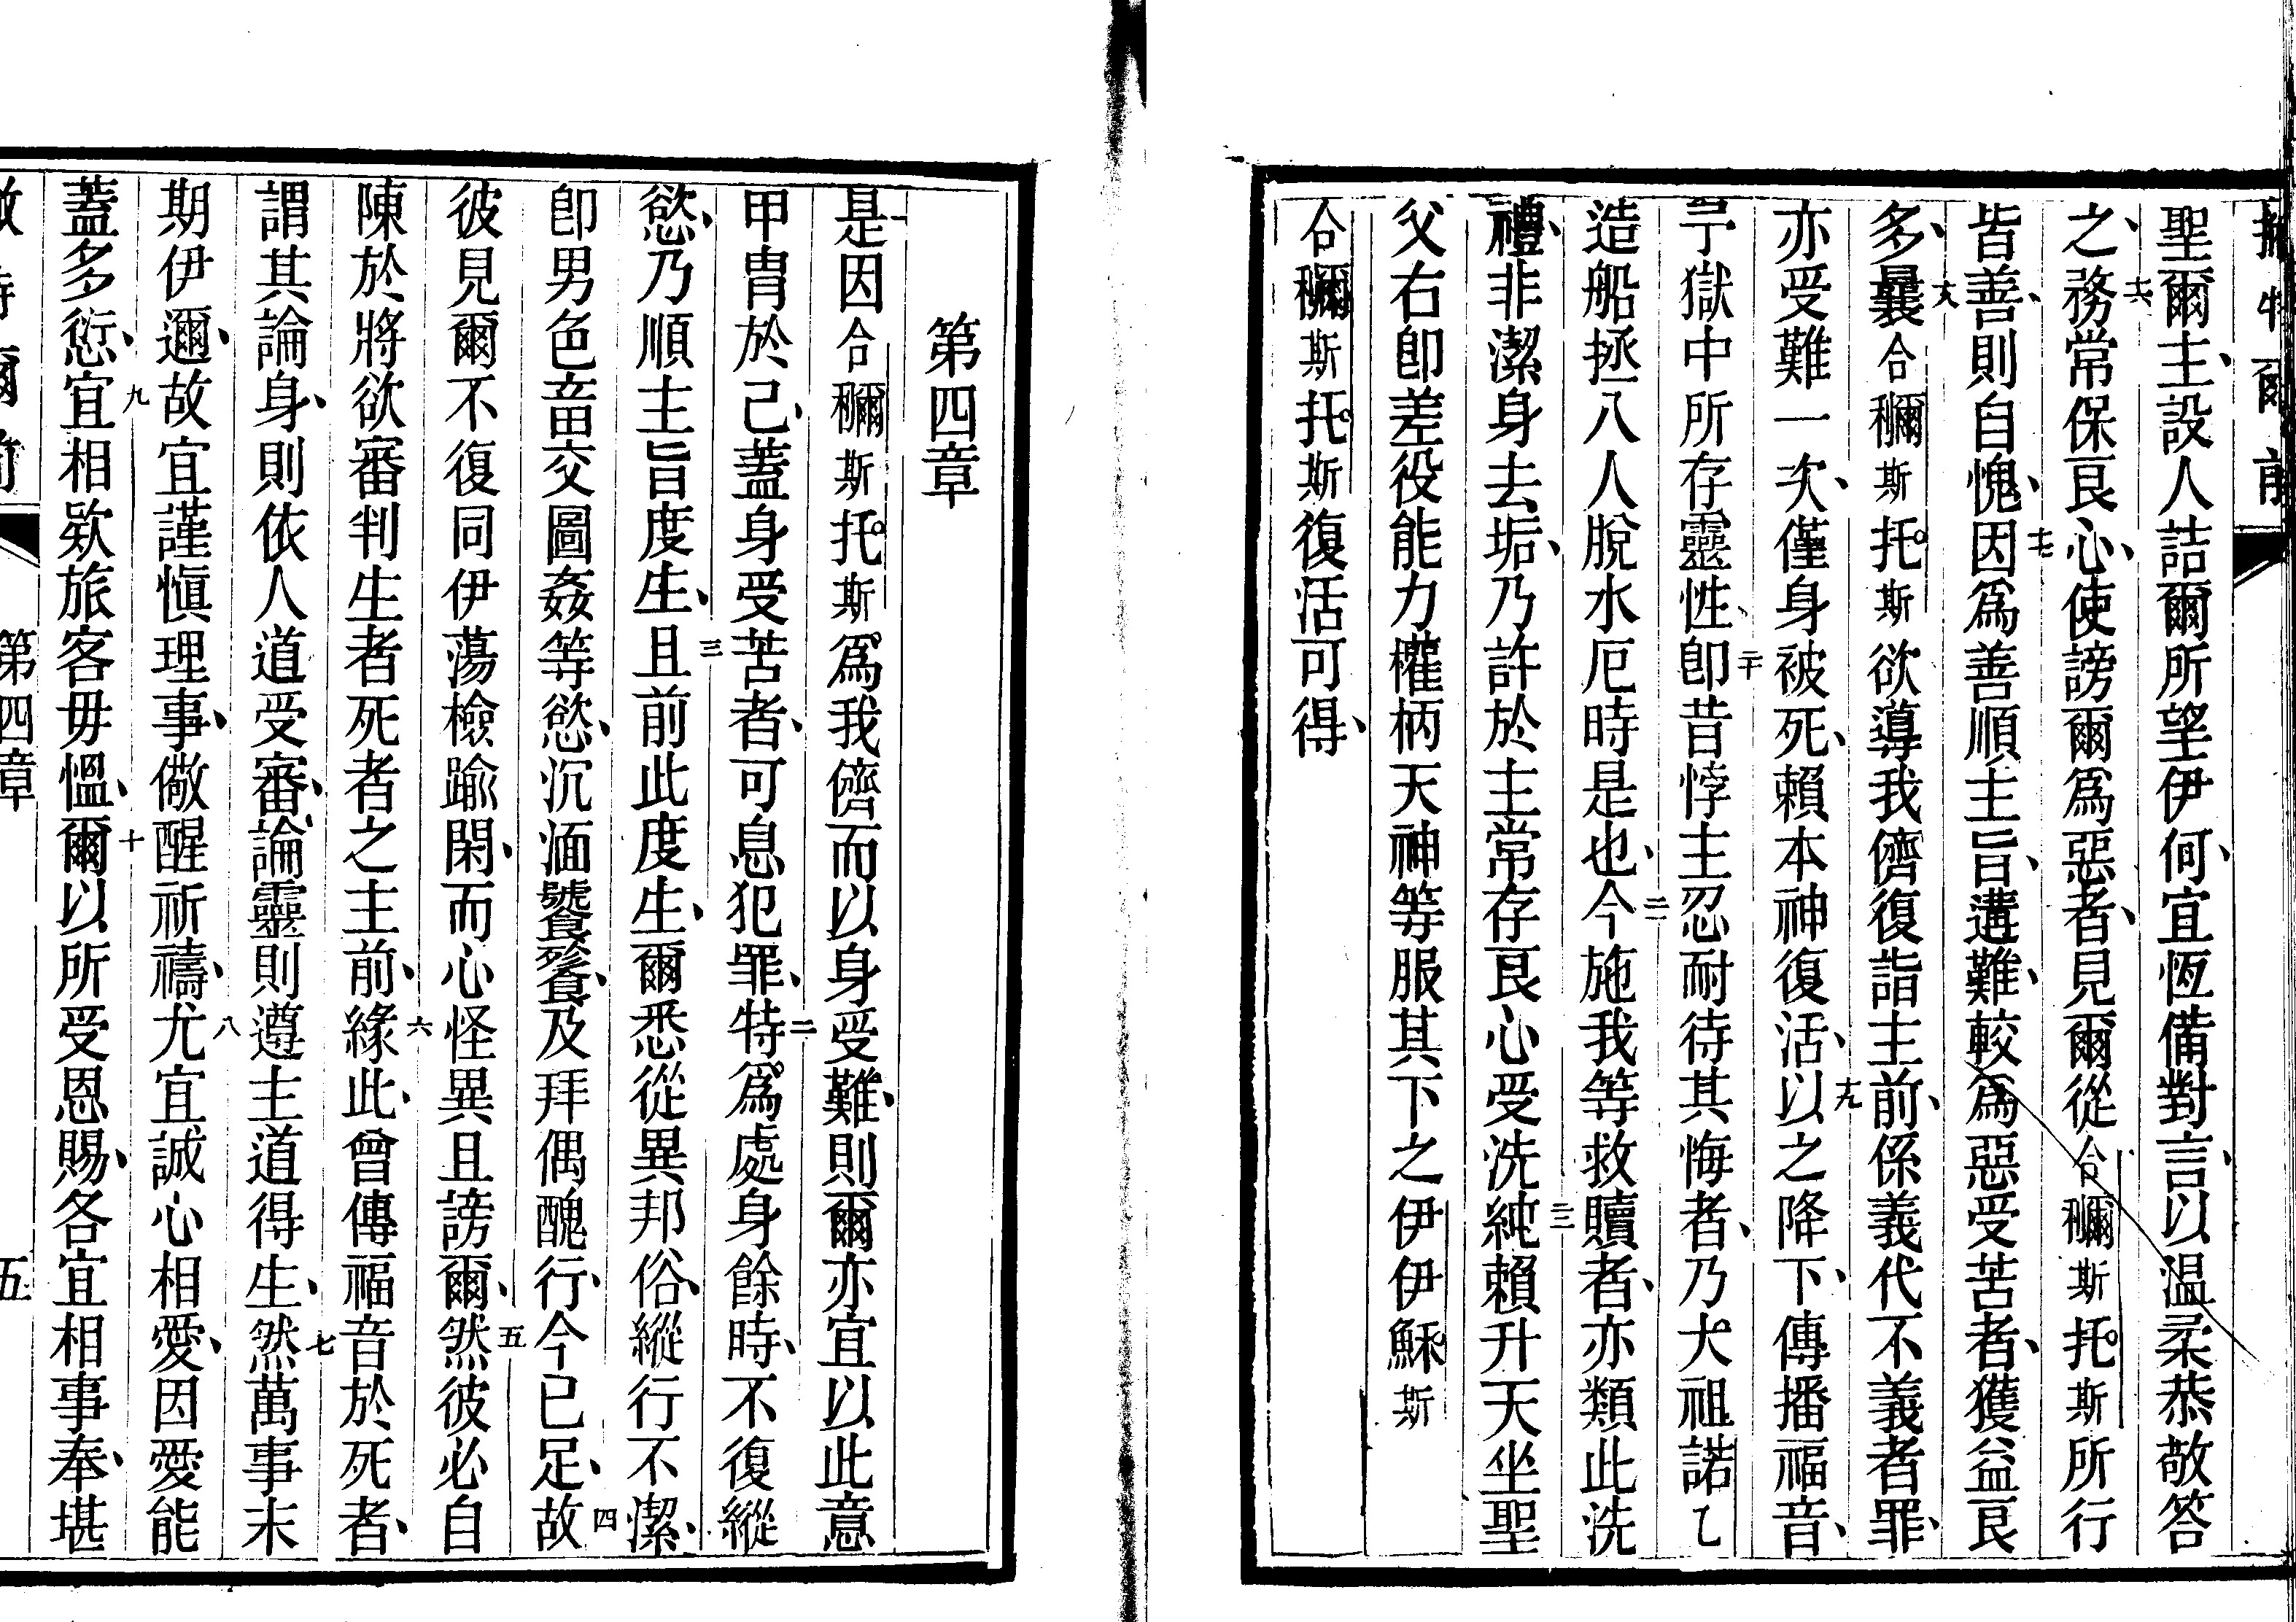 爾前
聖爾主、設人詰爾所望伊何、宜恆備對言、以温柔恭敬答
之、十六務常保良心、使謗爾爲惡者、見爾從合穪斯托斯所行
皆善、則自愧、十七因爲善順主旨、遘難、較爲惡受苦者、獲益良
多、十八曩合穪斯托斯欲導我儕復詣主前、係義代不義者罪、
亦受難一次、僅身被死、賴本神復活、十九以之降下、傳播福音、
于獄中所存靈性、二十即昔悖主忍耐待其悔者、乃犬祖諾乙
造船拯八人脫水厄時是也、二一今施我等救贖者、亦類此洗
禮、非潔身去垢、乃許於主常存良心受洗純二二賴升天坐聖
父右即差役能力權柄天神等服其下之伊伊穌斯
合穪斯托斯復活可得、
第四章
一是因合穪斯托斯爲我儕而以身受難、則爾亦宜以此意
甲冑於己、蓋身受苦者、可息犯罪、二特爲處身餘時、不復縱
慾、乃順主旨度生、三且前此度生、爾悉從異邦俗、縱行不潔、
即男色音畓交圖姦等慾、沉湎饕餮、及拜偶醜行、今已足、四故
彼見爾不復同伊蕩檢踰閑、而心怪異且謗爾、五然彼必自
陳於將欲審判生者死者之主前、六緣此、曾傳福音於死者、
謂其論身、則依人道受審、論靈則遵主道得生、七然萬事末
期伊邇、故宜謹慎理事、儆醒祈禱、八尤宜誠心相愛、因愛能
蓋多愆、九宜相欵旅客毋慍、十爾以所受恩賜、各宜相事奉、堪
第四章
五